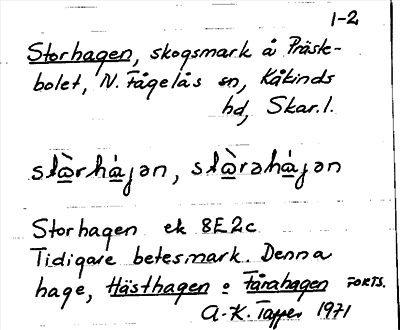 1-2
Storhagen, skogsmark å Präste-
bolet, N. Fågelås sn, Kåkinds
hd, Skar.l.
Storhagen ek 8E2c
Tidigare betesmark. Denna
hage, Hästhagen o Fårahagen FORTS.
A-K. 1971